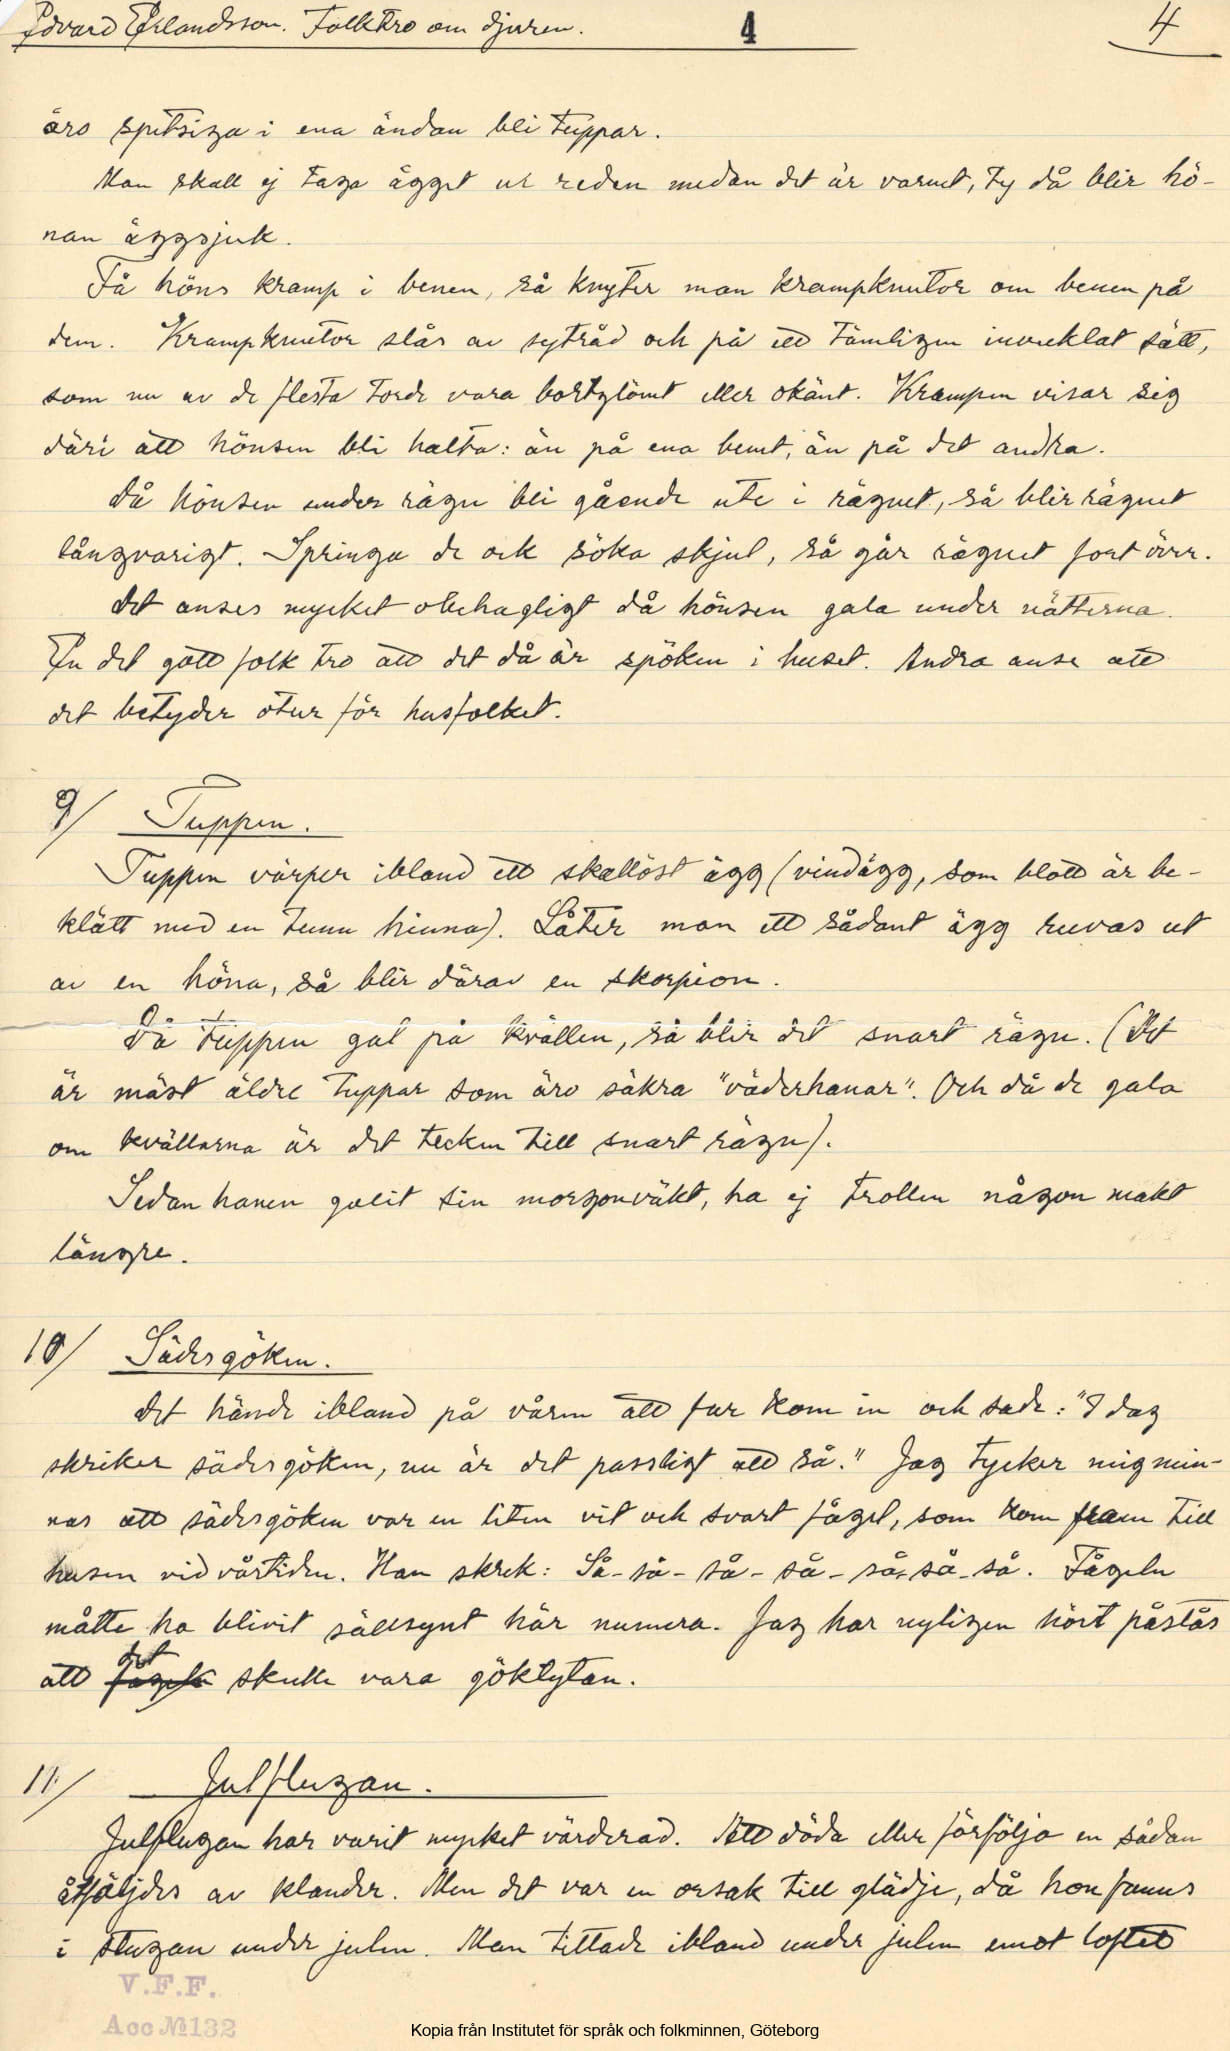 Edvard Erlandsson. Folktro om djuren. 4 4
äro spetsiga i ena ändan bli tuppar.
Man skall ej taga ägget ur reden medan det är varmt, ty då blir hö-
nan äggsjuk.
Få höns kramp i benen, så knyter man krampknutor om benen på
dem. Krampknutor slås av sytråd och på ett tämligen invecklat sätt,
som nu av de flesta torde vara bortglömt eller okänt. Krampen visar sig
däri att hönsen bli halta: än på ena benet, än på det andra.
Då hönsen under rägn bli gående ute i rägnet, så blir rägnet
långvarigt. Springa de och söka skjul, så går rägnet fort över.
Det anses mycket obehagligt då hönsen gala under nätterna.
En del gått folk tro att det då är spöken i huset. Andra anse att
det betyder otur för husfolket.
9/ Tuppen.
Tuppen värper ibland ett skallöst ägg (vindägg, som blott är be-
klätt med en tunn hinna). Låter man ett sådant ägg ruvas ut
av en höna, så blir därav en skorpion.
Då tuppen gal på kvällen, så blir det snart rägn. (Det
är mäst äldre tuppar som äro säkra "väderhanar". Och då de gala
om kvällarna är det tecken till snart rägn).
Sedan hanen galit sin morgonväkt, ha ej trollen någon makt
längre.
10/ Sädesgöken.
Det hände ibland på våren att far kom in och sade: "I dag
skriker sädesgöken, nu är det passligt att så." Jag tycker mig min-
nas att sädesgöken var en liten vit och svart fågel, som kom fram till
husen vid vårtiden. Han skrek: Så-så-så-så-så-så-så. Fågeln
måtte ha blivit sällsynt här numera. Jag har nyligen hört påstås
att det skulle vara göktytan.
11/ Julflugan.
Julflugan har varit mycket värderad. Att döda eller förfölja en sådan
åtföljdes av klander. Men det var en orsak till glädje, då hon fanns
i stugan under julen. Man tittade ibland under julen emot loftet
V.F.F.
Acc №132
Kopia från Institutet för språk och folkminnen, Göteborg